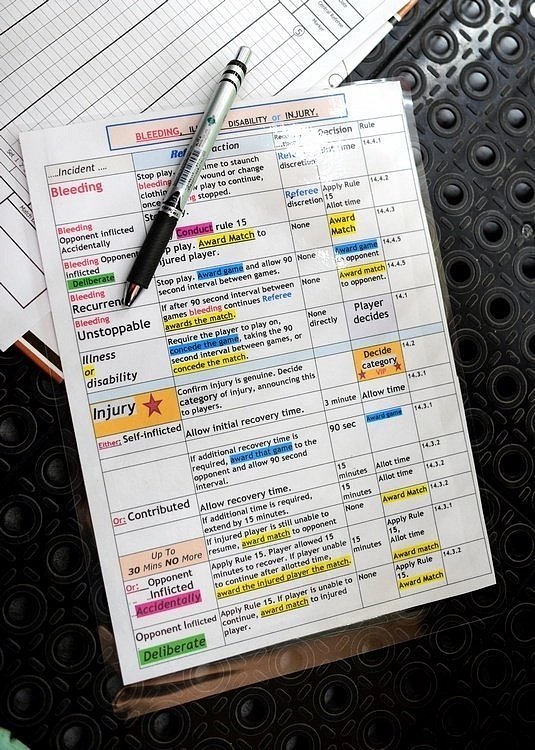 BLEEDING, IL DISABILITY or INJURY.
....Incident .... Ref action Decision Rule
Bleeding
Stop play. time to staunch
bleeding wound or change
clothing play to continue,
once stopped.
Referee
discretion
14.4.1
Bleeding
Opponent inflicted
Accidentally
Stop play.
Referee
discretion
Apply Rule
15
Allot time
14.4.2
Bleeding Opponent
Inflicted
Deliberate
Conduct rule 15
Stop play. Award Match to
injured player.
None
Award
Match
14.4.3
Bleeding
Recurrence
Stop play. Award game and allow 90
second interval between games.
None
Award game
to opponent
14.4.5
Bleeding
Unstoppable
If after 90 second interval between
games bleeding continues Referee
awards the match.
None
Award match
to opponent
14.4.5
Illness
or
disability
Require the player to play on,
concede the game, taking the 90
second interval between games, or
concede the match.
None
directly
Player
decides
14.1
Injury
Confirm injury is genuine. Decide
category of injury, announcing this
to players.
Decide
category
VIP
14.2
Either: Self-inflicted
Allow initial recovery time.
3 minute
Allow time
14.3.1
If additional recovery time is
required, award that game to the
opponent and allow 90 second
interval.
90 sec
Award game
14.3.1
Or: Contributed
Allow recovery time.
If additional time is required,
extend by 15 minutes.
15
minutes
15
minutes
Allot time
Allot time
14.3.2
14.3.2
Up To
30 Mins NO More
If injured player is still unable to
resume, award match to opponent
None
Award Match
14.3.2
Or: Opponent
Inflicted
Accidentally
Apply Rule 15. Player allowed 15
minutes to recover. If player unable
to continue after allotted time,
award the injured player the match.
15
minutes
Apply
Rule 15,
Allot time
Award match
14.3.1
Opponent Inflicted
Deliberate
Apply Rule 15. If player is unable to
continue, award match to injured
player.
None
Apply Rule
15,
Award Match
14.3.1